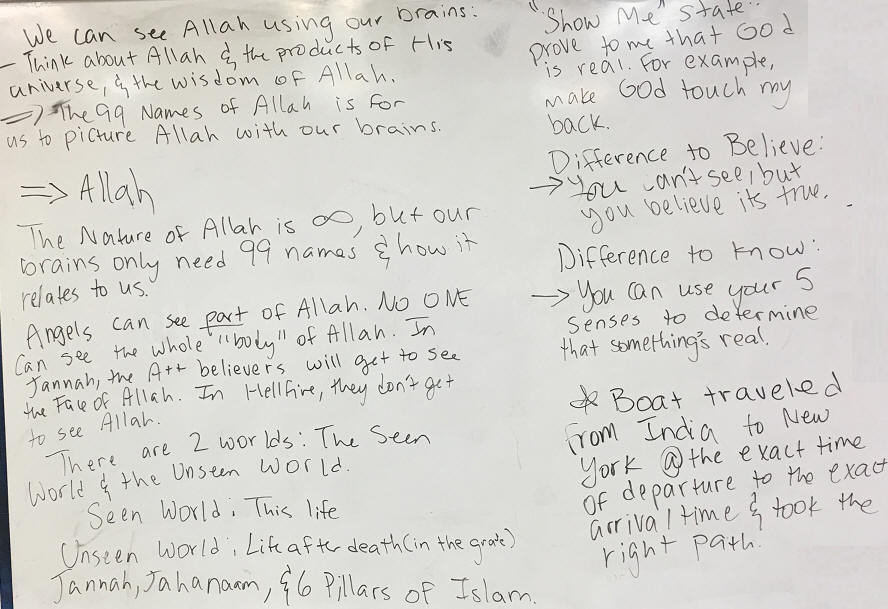 We can see Allah using our brains:
- Think about Allah & the products of His
universe, & the wisdom of Allah.
=> The 99 Names of Allah is for
us to picture Allah with our brains.
=> Allah
The Nature of Allah is ∞, but our
brains only need 99 names & how it
relates to us.
Angels can see part of Allah. NO ONE
Can see the whole "body" of Allah. In
Jannah, the A++ believers will get to see
the Face of Allah. In Hellfire, they don't get
to see Allah.
There are 2 worlds: The Seen
World & the Unseen World.
Seen World: This life
Unseen World: Life after death (in the grave)
Jannah, Jahanaam, & 6 Pillars of Islam.
"Show Me" State:
prove to me that God
is real. For example,
make God touch my
back.
Difference to Believe:
-> You can't see, but
you believe its true.
Difference to know:
-> You can use your 5
senses to determine
that something's real.
* Boat traveled
from India to New
York @ the exact time
of departure to the exact
arrival time & took the
right path.